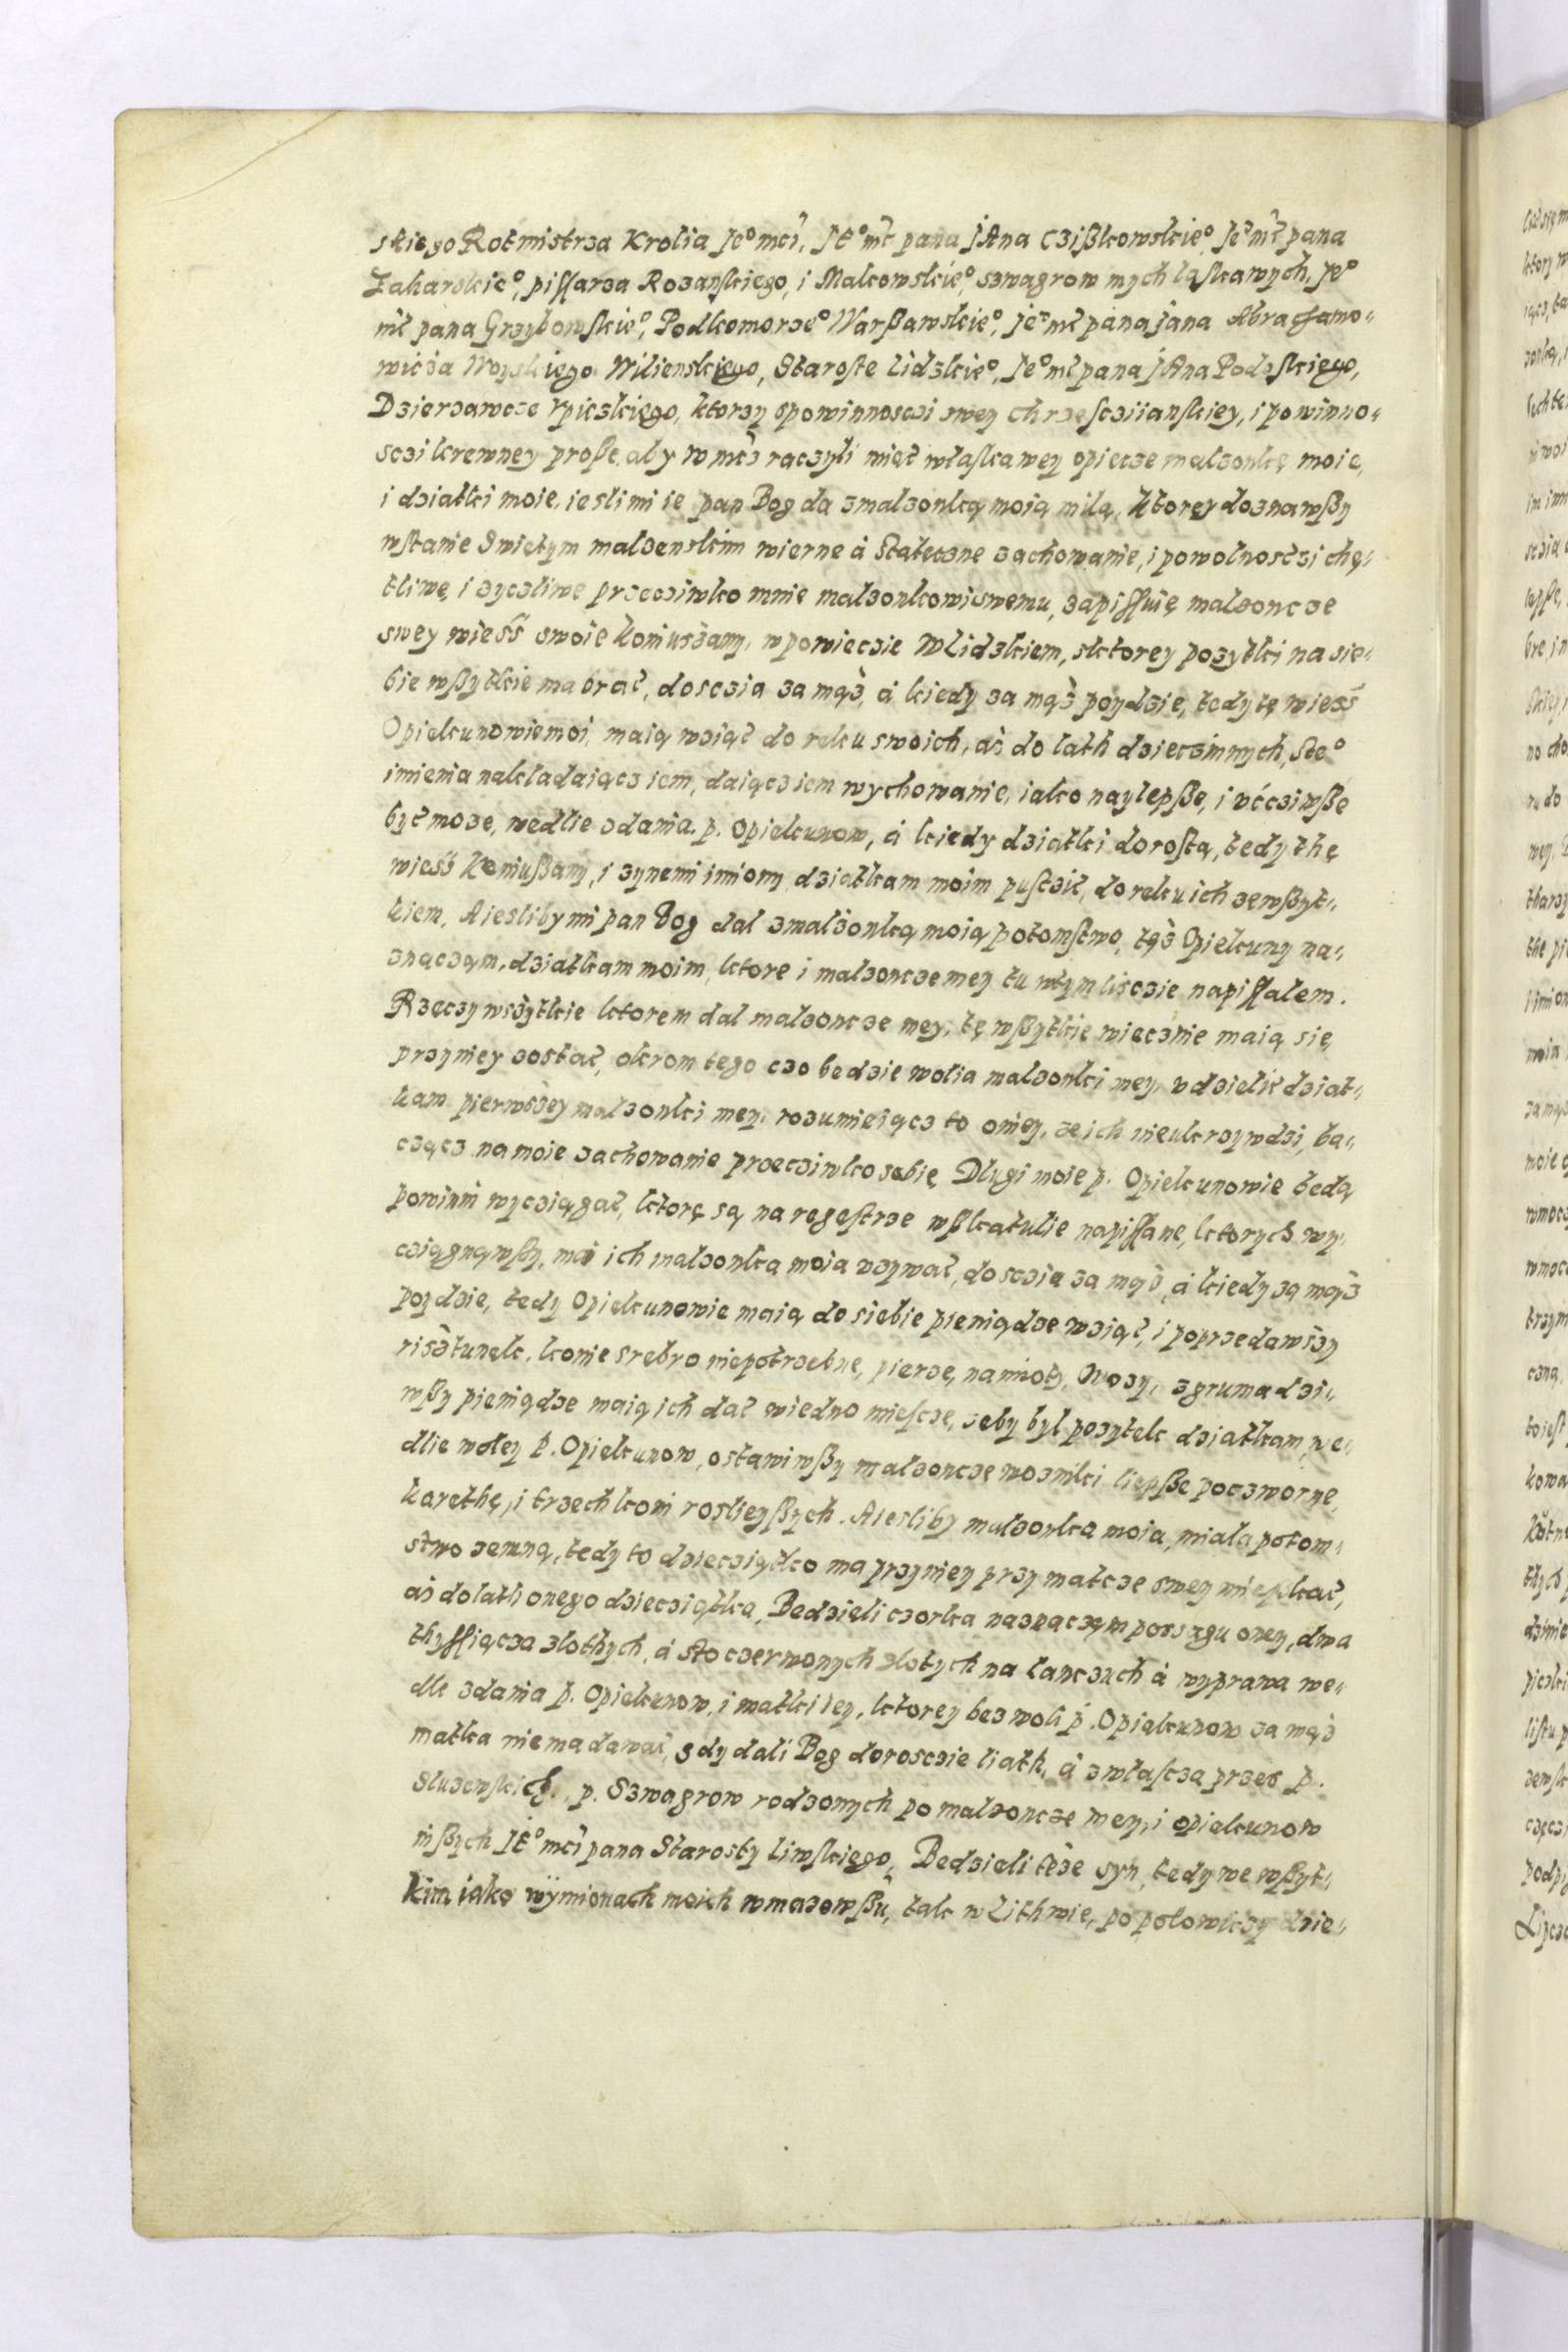 skiego Rotmistrza Krolia Je° mci, JE° mć pana jAna Czißkowskie° Je° mć pana
Zakarskie°, pißarza Rozanskiego, i Makowskie°, szwagrow mych łaskawych, Je°
mć pana Grzybowskie°, Podkomorze° Warßawskie°, je° mć pana jana Abrahamo„
wicza Woyskiego Wilienskiego, Staroste Lidzkie°, Je° mć pana jAna Podoskiego,
Dzierzawcze Rpiczkiego, ktorzy spowinnosczi swey chrzescziianskiey, i powinno„
sczi krewney proße, aby w mcż raczyli mięć właskawey opiecze malzonkę moię,
i dziatki moie, ieslimi ie pan Bog da zmalzonką moią milą, ktorey doznawßy
wstanie Swietym malzenskim wierne á Stateczne zachowanie, i powolnosczi chę„
tliwę, i zyczliwe przecziwko mnie malzonkowi swemu, zapißuię malzoncze
swey wieśś swoię koniuszany, wpowieczie W Lidzkiem, sktorey pozytki na sie„
bie wßytkie ma brać, dosczia za mąż, á kiedy za mąż poydzie, tedy tę wieśś
Opiekunowie moi, maią wziąć do reku swoich, aż do lath dziecżinnych, Ste°
imienia nakladaiącz iem, daiącz iem wychowanie, iako naylepße, i vćcziwße
być moze, wedlie zdania p. Opiekunow, á kiedy dziatki dorostą, tedy thę
wieśś Koniußany, i zynemi imiony dziatkam moim puscżić, do reku ich zewßyt„
kiem. Aieslibymi pan Bog dal zmalżonką moią potomstwo, tęż Opiekuny na„
znącząm, dziatkam moim, ktore i malzoncze mey tu wtym lisczie napißałem.
Rzęczy wsżytkie ktorem dal malzoncze mey, tę wßytkie wiecznie maią się
przyniey zostać, okrom tego czo bedzie wolia malzonki mey, vdzielić dziat„
kam pierwsżey malzonki mey, rozumieiącz to oniey, że ich nieukrzywdzi, ba„
cząncz na moie zachowanie przecziwko sobię. Dlugi moie p. Opiekunowie bedą
powinni wycziągać, ktorę są na regestrze wßkatulie napißane, ktorych wy„
cziągnąwßy, ma ich malzonka moia vzywać, dosczia za mąż, á kiedy zą mąż
poydzie, tedy Opiekunowie maią do siebie pieniądze wziąć, i poprzedawsży
risżtunęk, konie srebro niepotrzebne, pierze, namioty, Wozy, zgrumadzi„
wßy pieniądze maią ich dać wiedno miescze, zeby byl pozytek dziatkam, we„
dlie woley p. Opiekunow, ostawiwßy malzonczę wozniki liepße poczworne,
karethę, i trzech koni roslieyßych. Aiesliby malzonka moia, miala potom„
stwo zemną, tedy to dziecziątko ma przyniey przy matcze swey mießkać,
aż do lath onego dziecziątka, Bedzieli czorka naznączęm posagu oney, dwa
thyßiącza zlothych, á sto czerwonych zlotych na lanczuch á wyprawa we„
dle zdania p. Opiekunow, i matki iey, ktorey bez woli p. Opiekunow za mąż
matka niema dawać, gdy dali Bog dorosczie liath, á zwłascza przez p.
Sluzewskich, p. Szwagrow rodzonych po malzoncze mey, i opiekunow
inßych JE° mci pana Starosty liwskiego, Bedzieli téże syn, tedy we wßyt„
kim iako wÿmionach moich wmazowßu, tak w Lithwie, po połowiczy dzie„